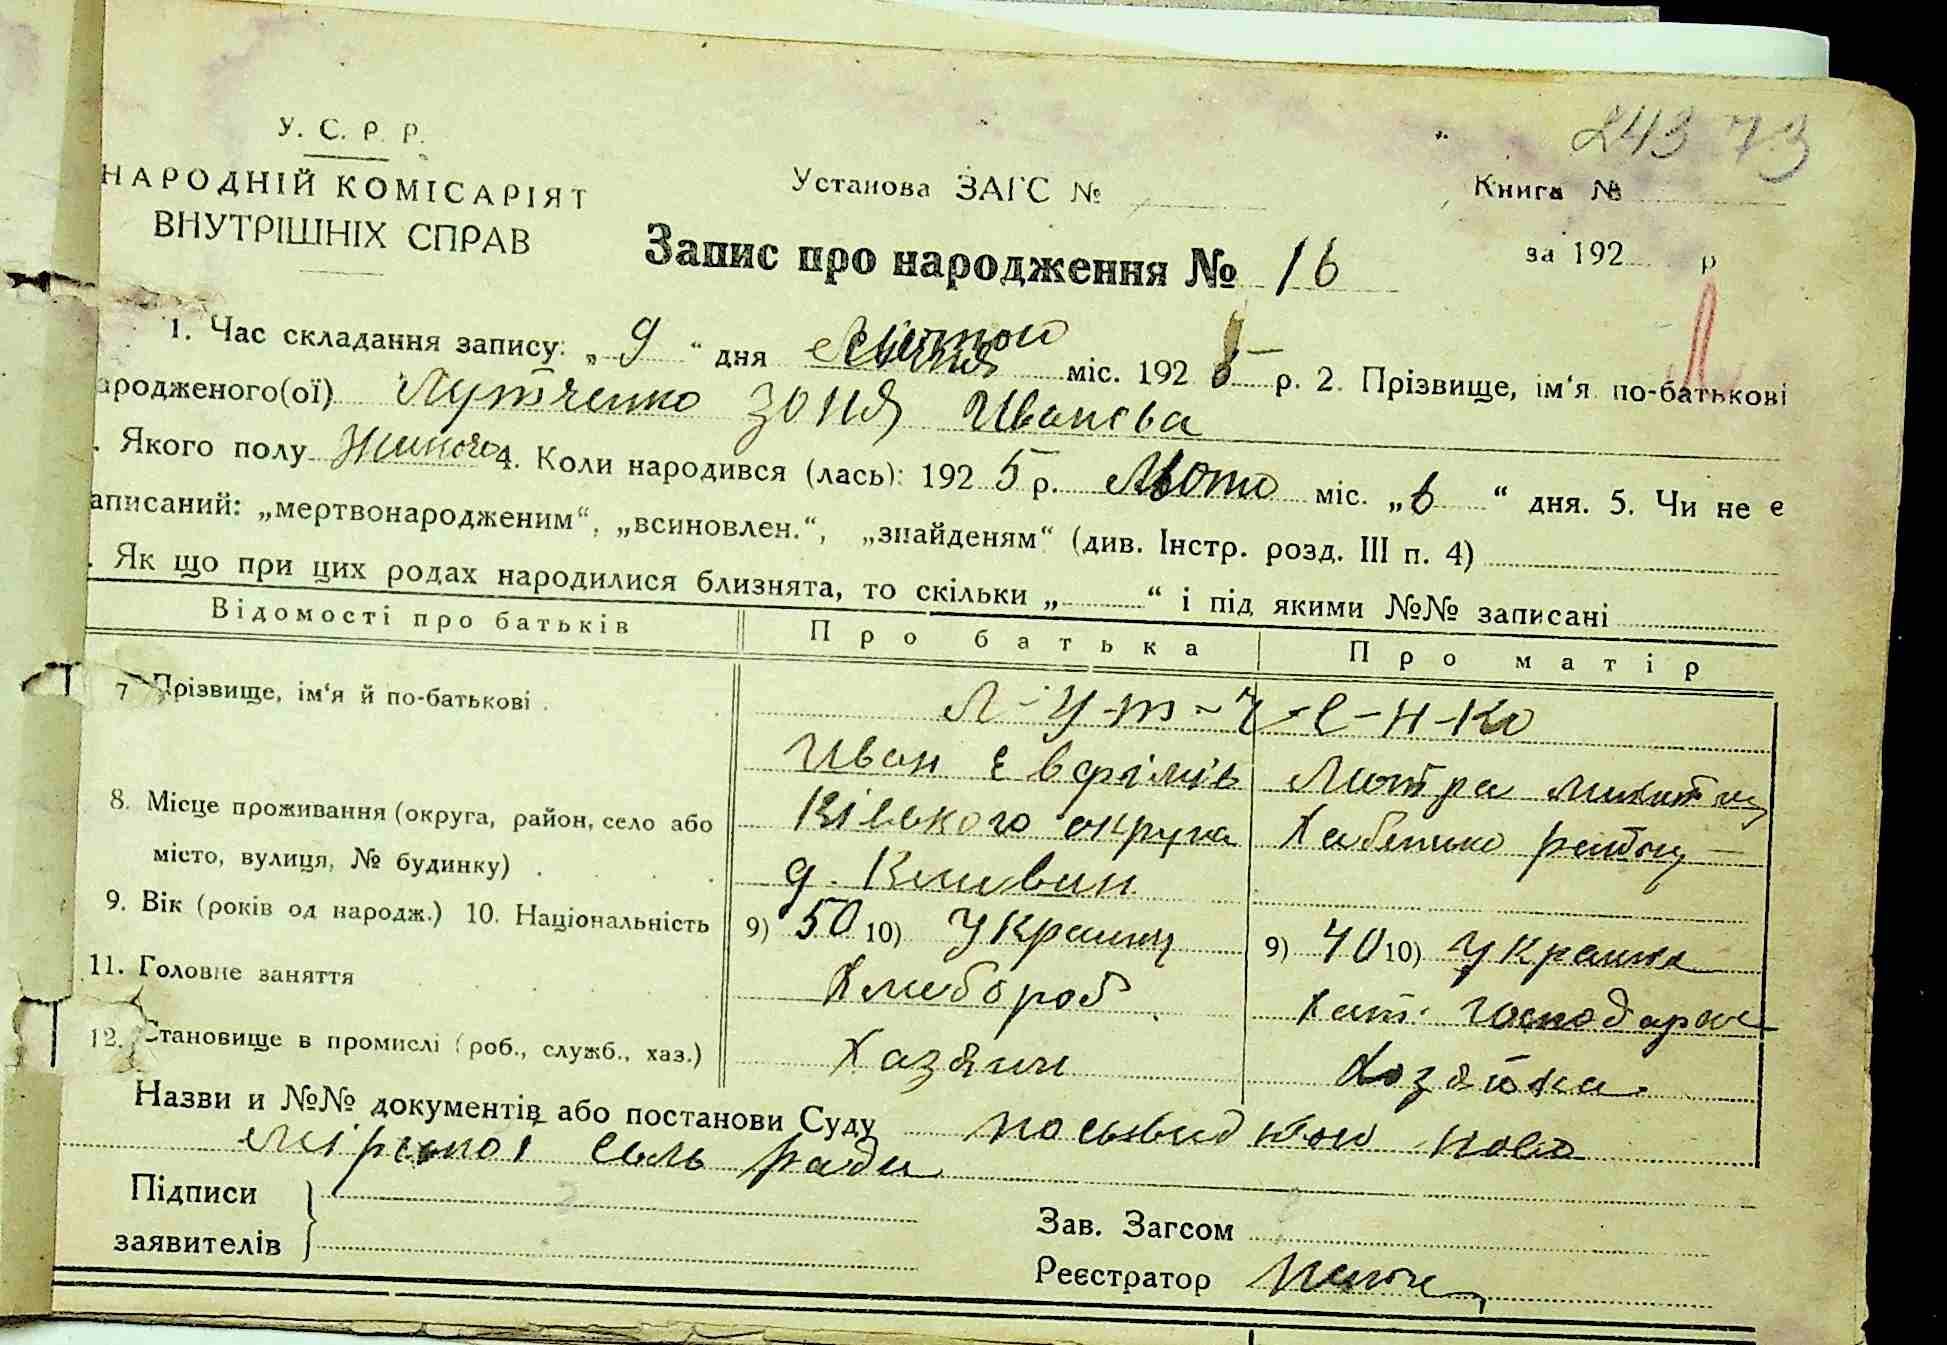 243 73
У. С. Р. Р.
НАРОДНІЙ КОМІСАРІЯТ
ВНУТРІШНІХ СПРАВ
Установа ЗАГС №
Книга №
за 192 р
Запис про народження № 16
1. Час складання запису: „ 9 “ дня міс. 192 5 р. 2. Прізвище, ім‘я по-батькові
ародженого(ої) Лутченко Зоня Иванєва
. Якого полу Жиночо 4. Коли народився (лась): 192 5 р. Люто міс. „ 6 “ дня. 5. Чи не є
аписаний: „мертвонародженим“, „всиновлен.“, „знайденям“ (див. Інстр. розд. III п. 4)
. Як що при цих родах народилися близнята, то скільки „ “ і під якими №№ записані
Відомості про батьків Про батька Про матір
7 Прізвище, ім‘я й по-батькові .
Л-у-т-ч-е-н-ко
Иван Євфімів
8. Місце проживання (округа, район, село або
місто, вулиця, № будинку) .
округа
9. Вік (років од народж.) 10. Національність
9) 50 10) Украинц 9) 40 10) Украинка
11. Головне заняття
Хлибороб хат. господарка
12. Становище в промислі (роб., служб., хаз.)
Хазяин Хозяйка
Назви и №№ документів або постанови Суду
ради
Підписи
заявителів
Зав. Загсом
Реєстратор